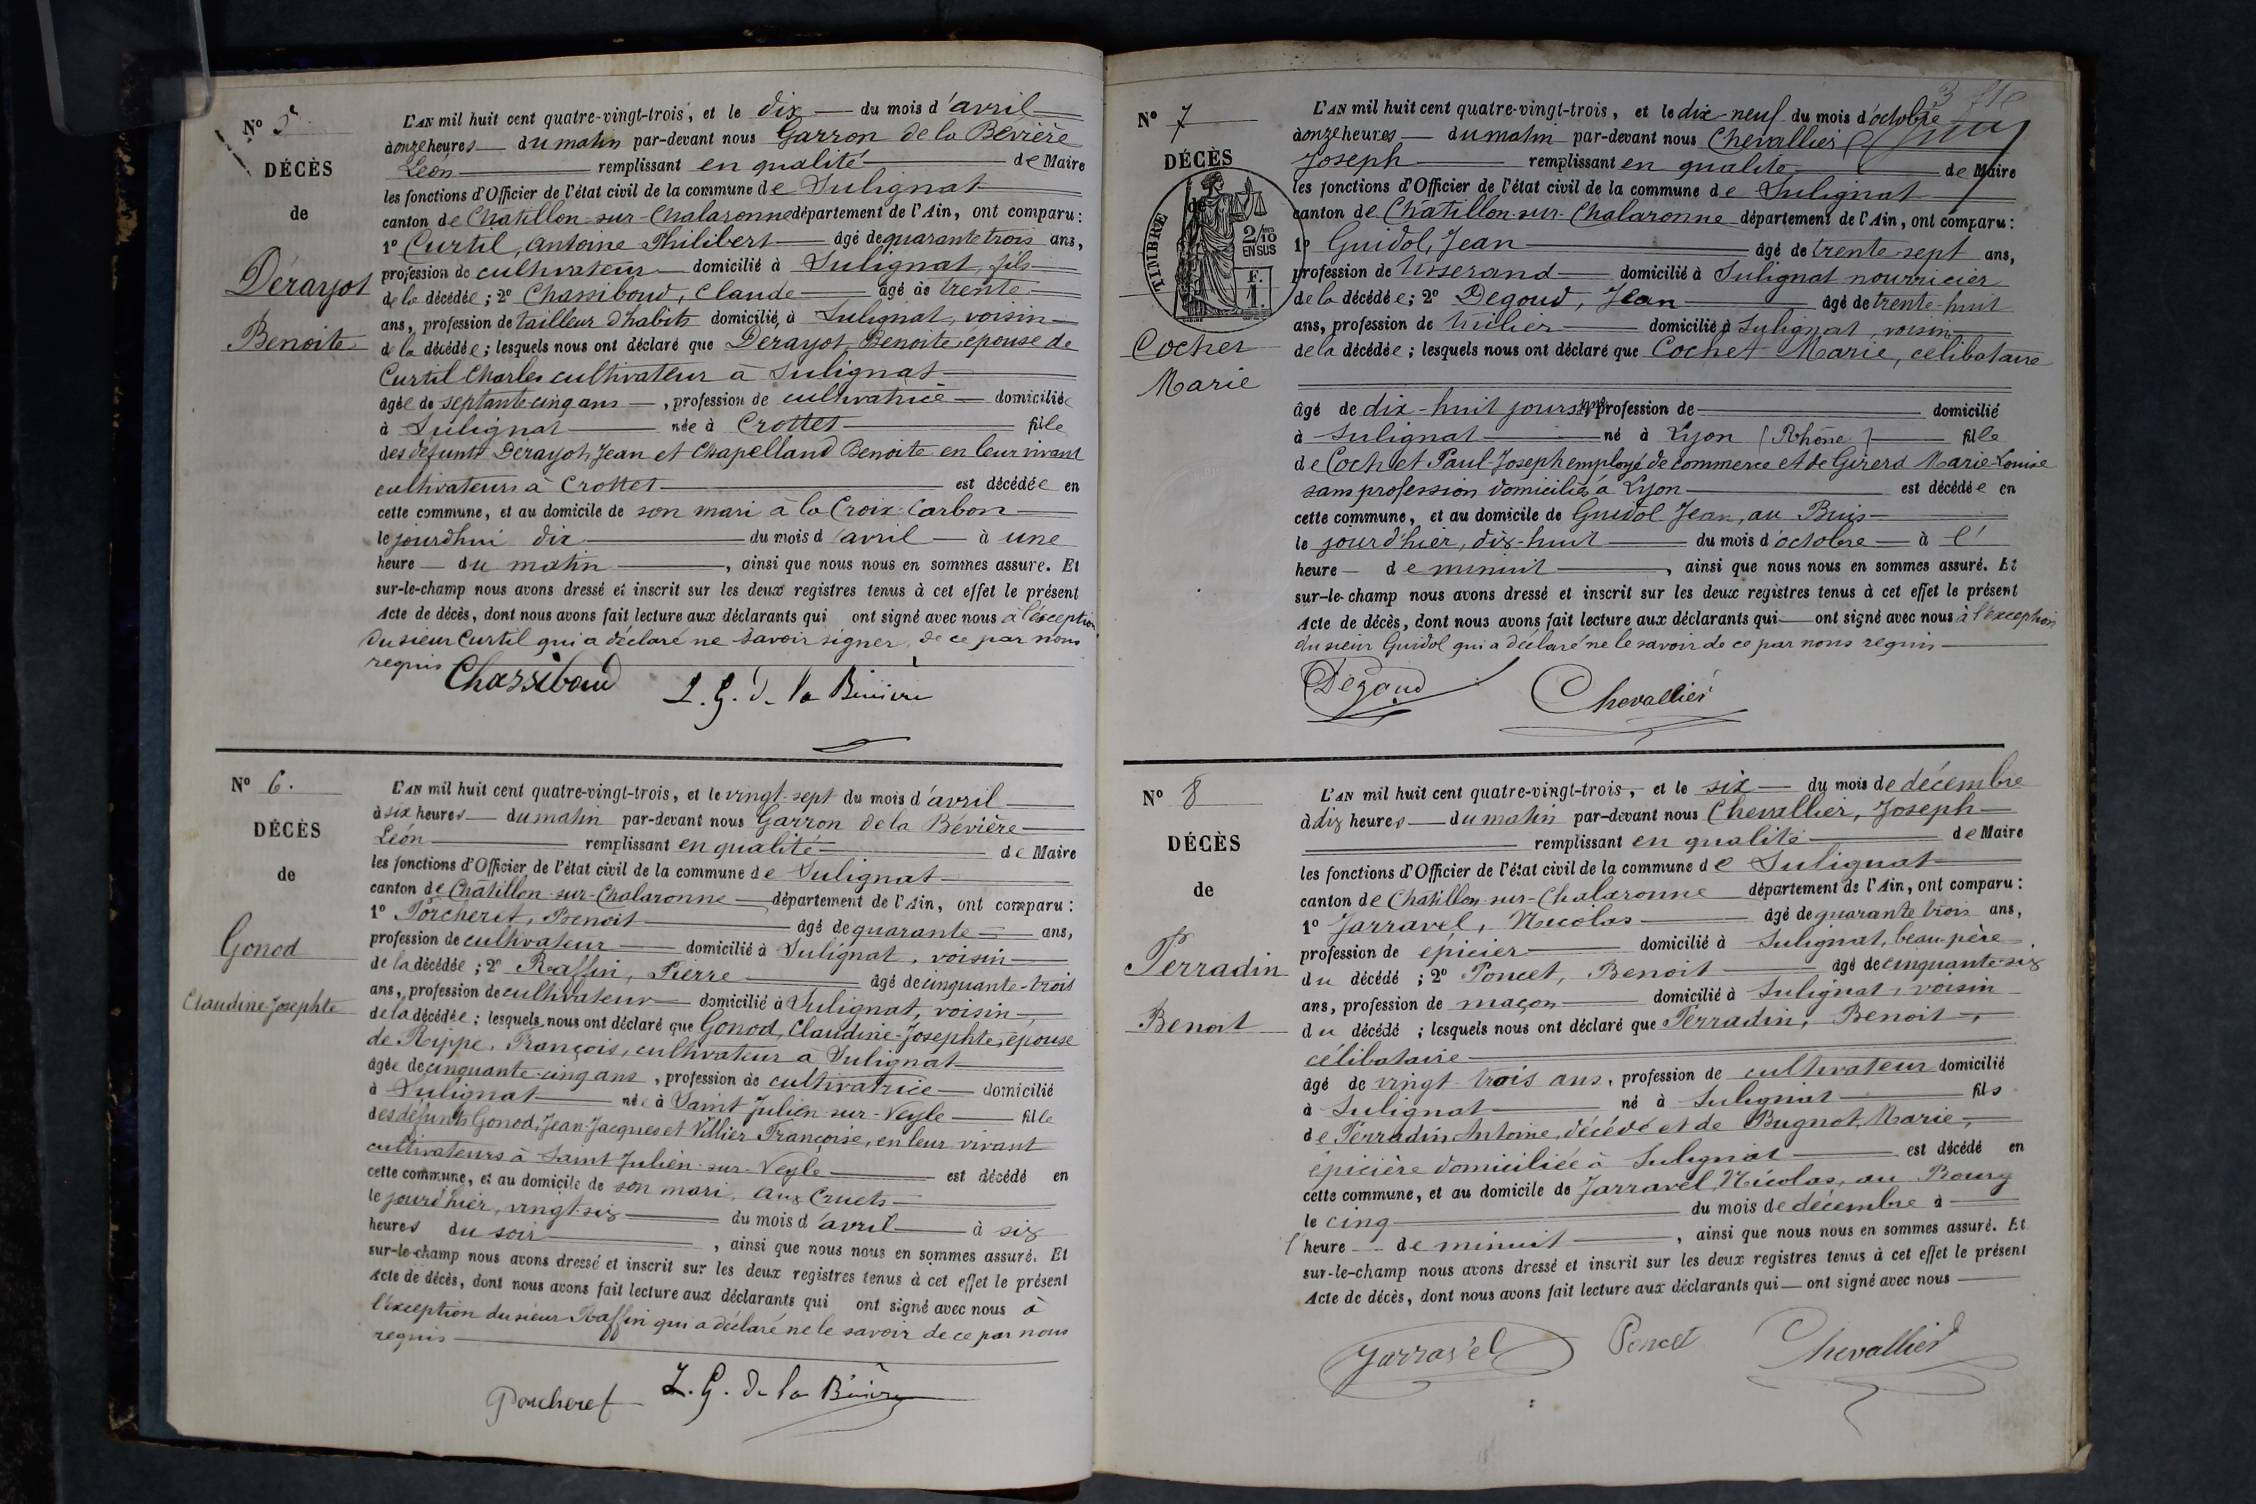 N° 5
DÉCÈS
de
Dérayot
Benoite
L'AN mil huit cent quatre-vingt-trois, et le dix du mois d'avril
à onze heures du matin par-devant nous Garron de la Bévière
Léon remplissant en qualité de Maire
les fonctions d'Officier de l'état civil de la commune de Sulignat
canton de Châtillon-sur-Chalaronne département de l'Ain, ont comparu :
1° Curtil, Antoine Philibert âgé de quarante trois ans,
profession de cultivateur domicilié à Sulignat, fils
de la décédée ; 2° Chassiboud, Claude âgé de trente
ans, profession de tailleur d'habits domicilié à Sulignat, voisin
de la décédée ; lesquels nous ont déclaré que Dérayot, Benoite, épouse de
Curtil Charles cultivateur à Sulignat
âgée de septante cinq ans, profession de cultivatrice domiciliée
à Sulignat née à Crottet fille
des défunts Dérayot, Jean et Chapelland Benoite en leur vivant
cultivateurs à Crottet est décédée en
cette commune, et au domicile de son mari à la Croix-Carbon
le jourd'hui dix du mois d'avril à une
heure du matin, ainsi que nous nous en sommes assuré. Et
sur-le-champ nous avons dressé et inscrit sur les deux registres tenus à cet effet le présent
Acte de décès, dont nous avons fait lecture aux déclarants qui ont signé avec nous à l'exception
du sieur Curtil qui a déclaré ne savoir signer, de ce par nous
requis
Chassiboud L. G. de la Bévière
N° 6.
DÉCÈS
de
Gonod
Claudine-Josephte
L'AN mil huit cent quatre-vingt-trois, et le vingt-sept du mois d'avril
à six heures du matin par-devant nous Garron de la Bévière
Léon remplissant en qualité de Maire
les fonctions d'Officier de l'état civil de la commune de Sulignat
canton de Châtillon-sur-Chalaronne département de l'Ain, ont comparu :
1° Porcheret, Benoit âgé de quarante ans,
profession de cultivateur domicilié à Sulignat, voisin
de la décédée ; 2° Raffin, Pierre âgé de cinquante-trois
ans, profession de cultivateur domicilié à Sulignat, voisin
de la décédée ; lesquels nous ont déclaré que Gonod, Claudine-Josephte, épouse
de Rippe, François, cultivateur à Sulignat
âgée de cinquante-cinq ans, profession de cultivatrice domicilié
à Sulignat née à Saint Julien-sur-Veyle fille
des défunts Gonod, Jean-Jacques et Villier Françoise, en leur vivant
cultivateurs à Saint Julien-sur-Veyle est décédé en
cette commune, et au domicile de son mari, aux Cruets
le jourd'hier, vingt-six du mois d'avril à six
heures du soir, ainsi que nous nous en sommes assuré. Et
sur-le-champ nous avons dressé et inscrit sur les deux registres tenus à cet effet le présent
Acte de décès, dont nous avons fait lecture aux déclarants qui ont signé avec nous à
l'exception du sieur Raffin qui a déclaré ne le savoir de ce par nous
requis
Porcheret L. G. de la Bévière
3
N° 7
DÉCÈS
de
TIMBRE
2/10
EN SUS
F.
1.
Cochet
Marie
L'AN mil huit cent quatre-vingt-trois, et le dix-neuf du mois d'octobre
à onze heures du matin par-devant nous Chevallier
Joseph remplissant en qualité de Maire
les fonctions d'Officier de l'état civil de la commune de Sulignat
canton de Châtillon-sur-Chalaronne département de l'Ain, ont comparu :
1° Guidol, Jean âgé de trente-sept ans,
profession de tisserand domicilié à Sulignat nourricier
de la décédée ; 2° Degoud, Jean âgé de trente-huit
ans, profession de tuilier domicilié à Sulignat, voisin
de la décédée ; lesquels nous ont déclaré que Cochet Marie, célibataire
âgé de dix-huit jours, profession de domicilié
à Sulignat né à Lyon (Rhône) fille
de Cochet Paul-Joseph employé de commerce et de Girerd Marie-Louise
sans profession domiciliés à Lyon est décédée en
cette commune, et au domicile de Guidol Jean, au Buis
le jourd'hier, dix-huit du mois d'octobre à l'
heure de minuit, ainsi que nous nous en sommes assuré. Et
sur-le-champ nous avons dressé et inscrit sur les deux registres tenus à cet effet le présent
Acte de décès, dont nous avons fait lecture aux déclarants qui ont signé avec nous à l'exception
du sieur Guidol qui a déclaré ne le savoir de ce par nous requis
Degoud Chevallier
N° 8
DÉCÈS
de
Terradin
Benoit
L'AN mil huit cent quatre-vingt-trois, et le six du mois de décembre
à dix heures du matin par-devant nous Chevallier, Joseph
remplissant en qualité de Maire
les fonctions d'Officier de l'état civil de la commune de Sulignat
canton de Châtillon-sur-Chalaronne département de l'Ain, ont comparu :
1° Jarravel, Nicolas âgé de quarante trois ans,
profession de épicier domicilié à Sulignat, beau-père
du décédé ; 2° Poncet, Benoit âgé de cinquante-six
ans, profession de maçon domicilié à Sulignat, voisin
du décédé ; lesquels nous ont déclaré que Terradin, Benoit,
célibataire
âgé de vingt-trois ans, profession de cultivateur domicilié
à Sulignat né à Sulignat fils
de Terradin Antoine, décédé et de Bugnot, Marie,
épicière domiciliée à Sulignat est décédé en
cette commune, et au domicile de Jarravel, Nicolas, au Bourg
le cinq du mois de décembre à
l'heure de minuit, ainsi que nous nous en sommes assuré. Et
sur-le-champ nous avons dressé et inscrit sur les deux registres tenus à cet effet le présent
Acte de décès, dont nous avons fait lecture aux déclarants qui ont signé avec nous
Jarravel Poncet Chevallier